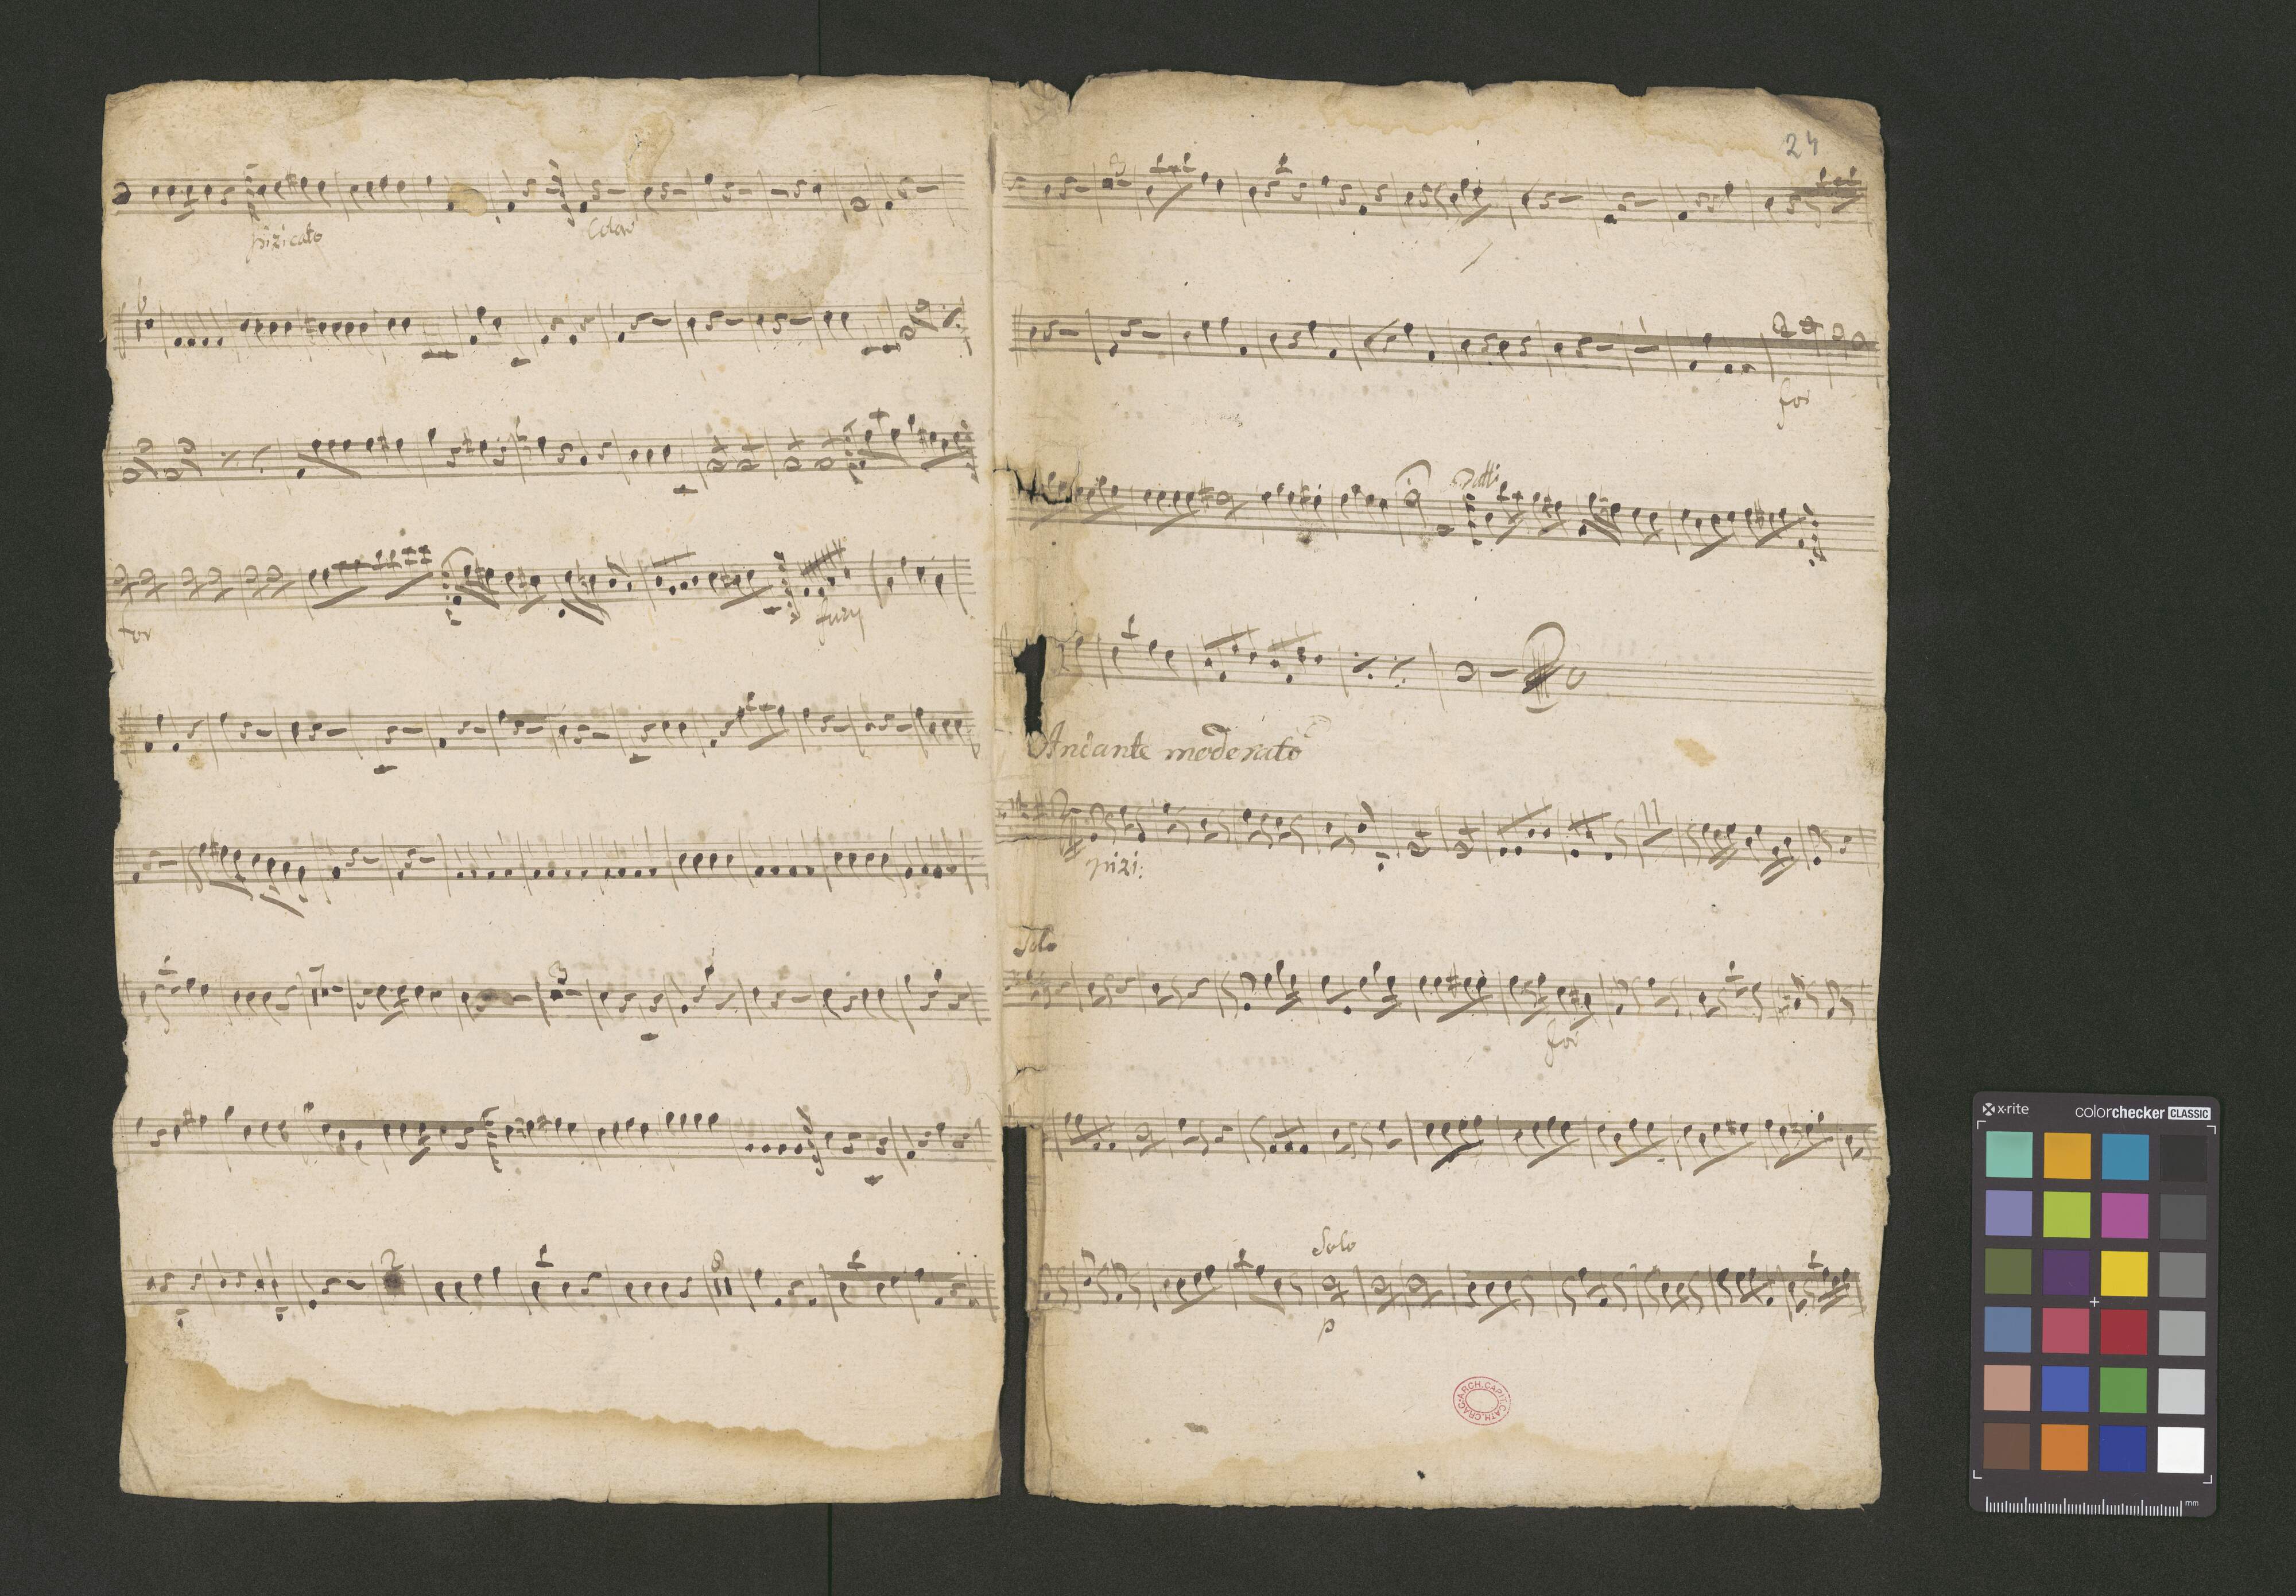 pizicato
for
24
for
Andante moderato
pizi:
Solo
for
Solo
p
ARCH. CAPIT. CATH. CRAC.
x·rite colorchecker CLASSIC
mm